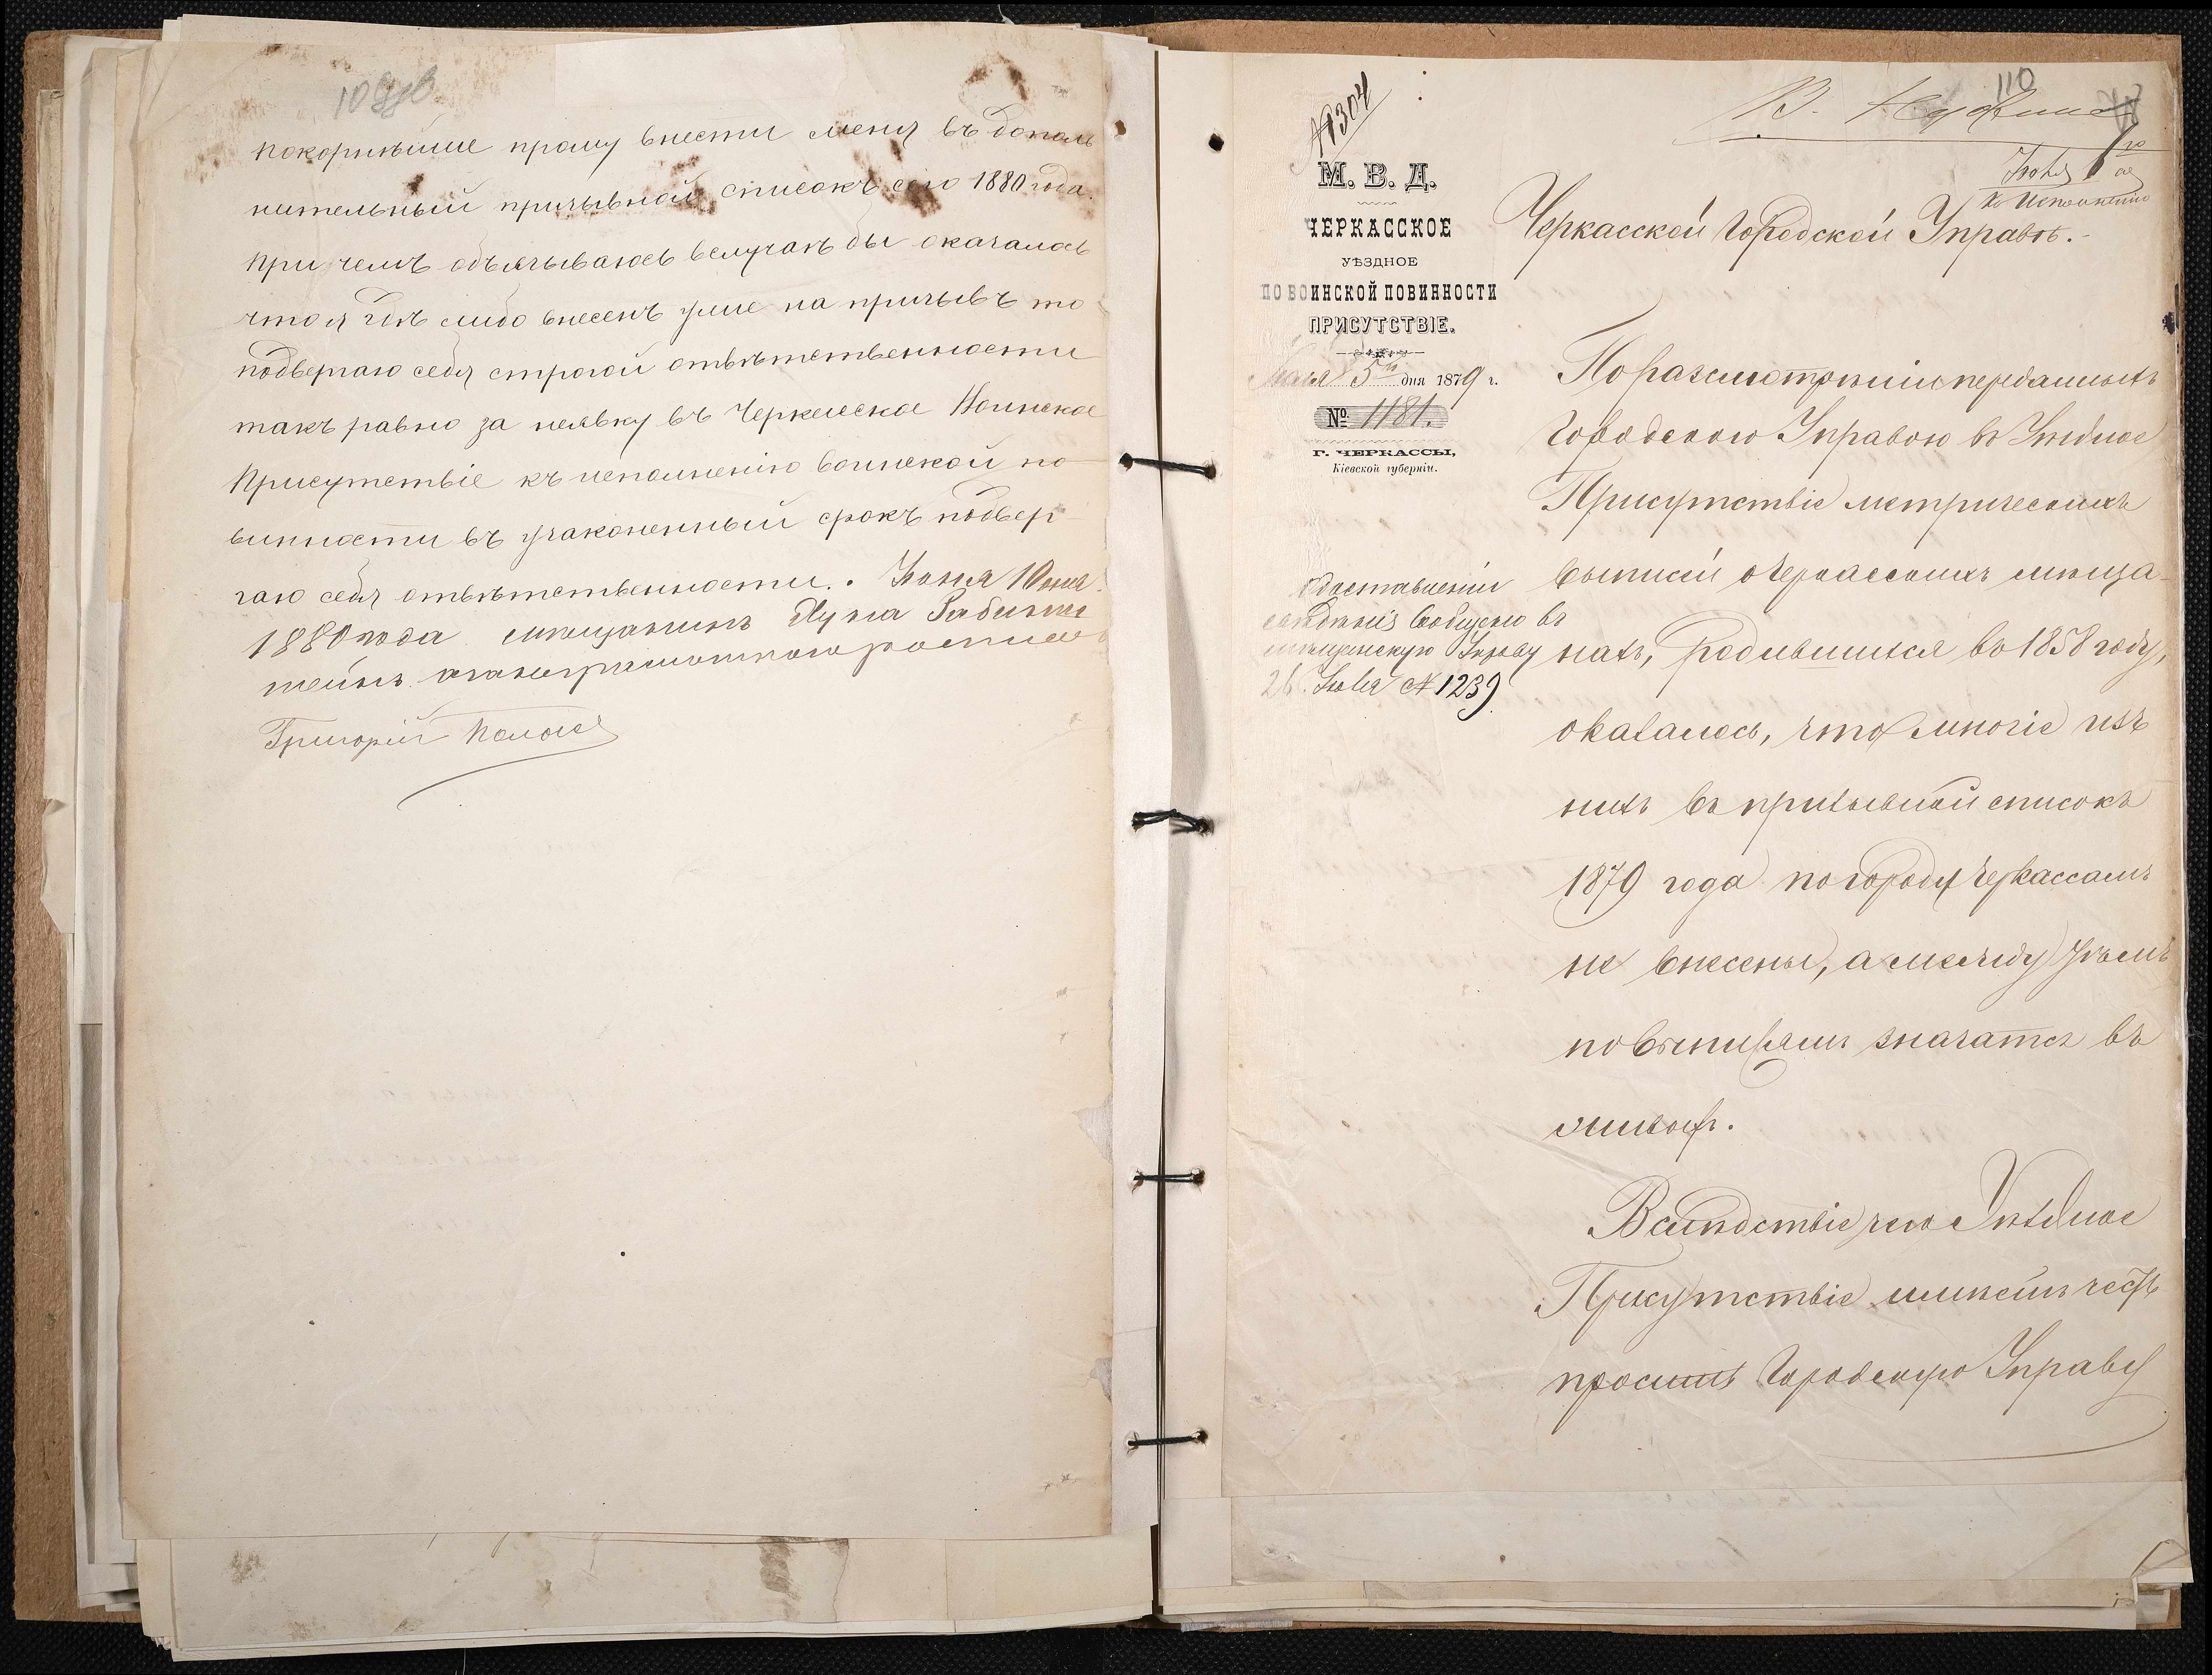 покорнѣйше прошу внести меня въ допол
нительный призывной списокъ сего 1880 года.
При чемъ обьязываюсь вслучаѣ бы оказалось
что я гдѣ либо внесенъ уже на призывъ то
подвергаю себя строгой отвѣтственности
такъ равно за неявку въ Черкасское Воинское
Присутствіе къ исполненію воинской по
винности въ узаконенный срокъ подвер
гаю себя отвѣтственности. Іюня 10 дня
1880 года мѣщанинъ
Григорій
110
№ 1304
Іюля
Къ исполненію
М. В. Д.
ЧЕРКАССКОЕ
УѢЗДНОЕ
ПО ВОИНСКОЙ ПОВИННОСТИ
ПРИСУТСТВІЕ.
5 дня 1879 г.
№ 1181.
Г. ЧЕРКАССЫ,
Кіевской губерніи.
О доставленіи
свѣдѣній сообщено въ
мѣщанскую Управу
26 Іюля № 1239
Черкасской Городской Управѣ.
По разсмотрѣніи переданныхъ
Городскою Управою въ Уѣздное
Присутствіе метрическихъ
выписей о Черкасскихъ мѣща-
нахъ, родившихся въ 1858 году,
оказалось, что многіе изъ
нихъ въ призывной списокъ
1879 года по городу Черкассамъ
не внесены, а между тѣмъ
по выписямъ значатся въ
живыхъ.
Вслѣдствіе чего Уѣздное
Присутствіе имѣетъ честь
просить Городскую Управу